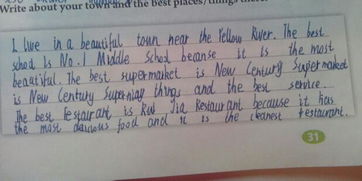 Write about your town and the best places/things there.
I live in a beautiful town near the Yellow River. The best
school is No.1 Middle School because it is the most
beautiful. The best supermarket is New Century Supermarket
is New Century Supermap things and the best service.
The best restaurant is Rui Jia Restaurant because it has
the most food and it is the cleanest restaurant.
31